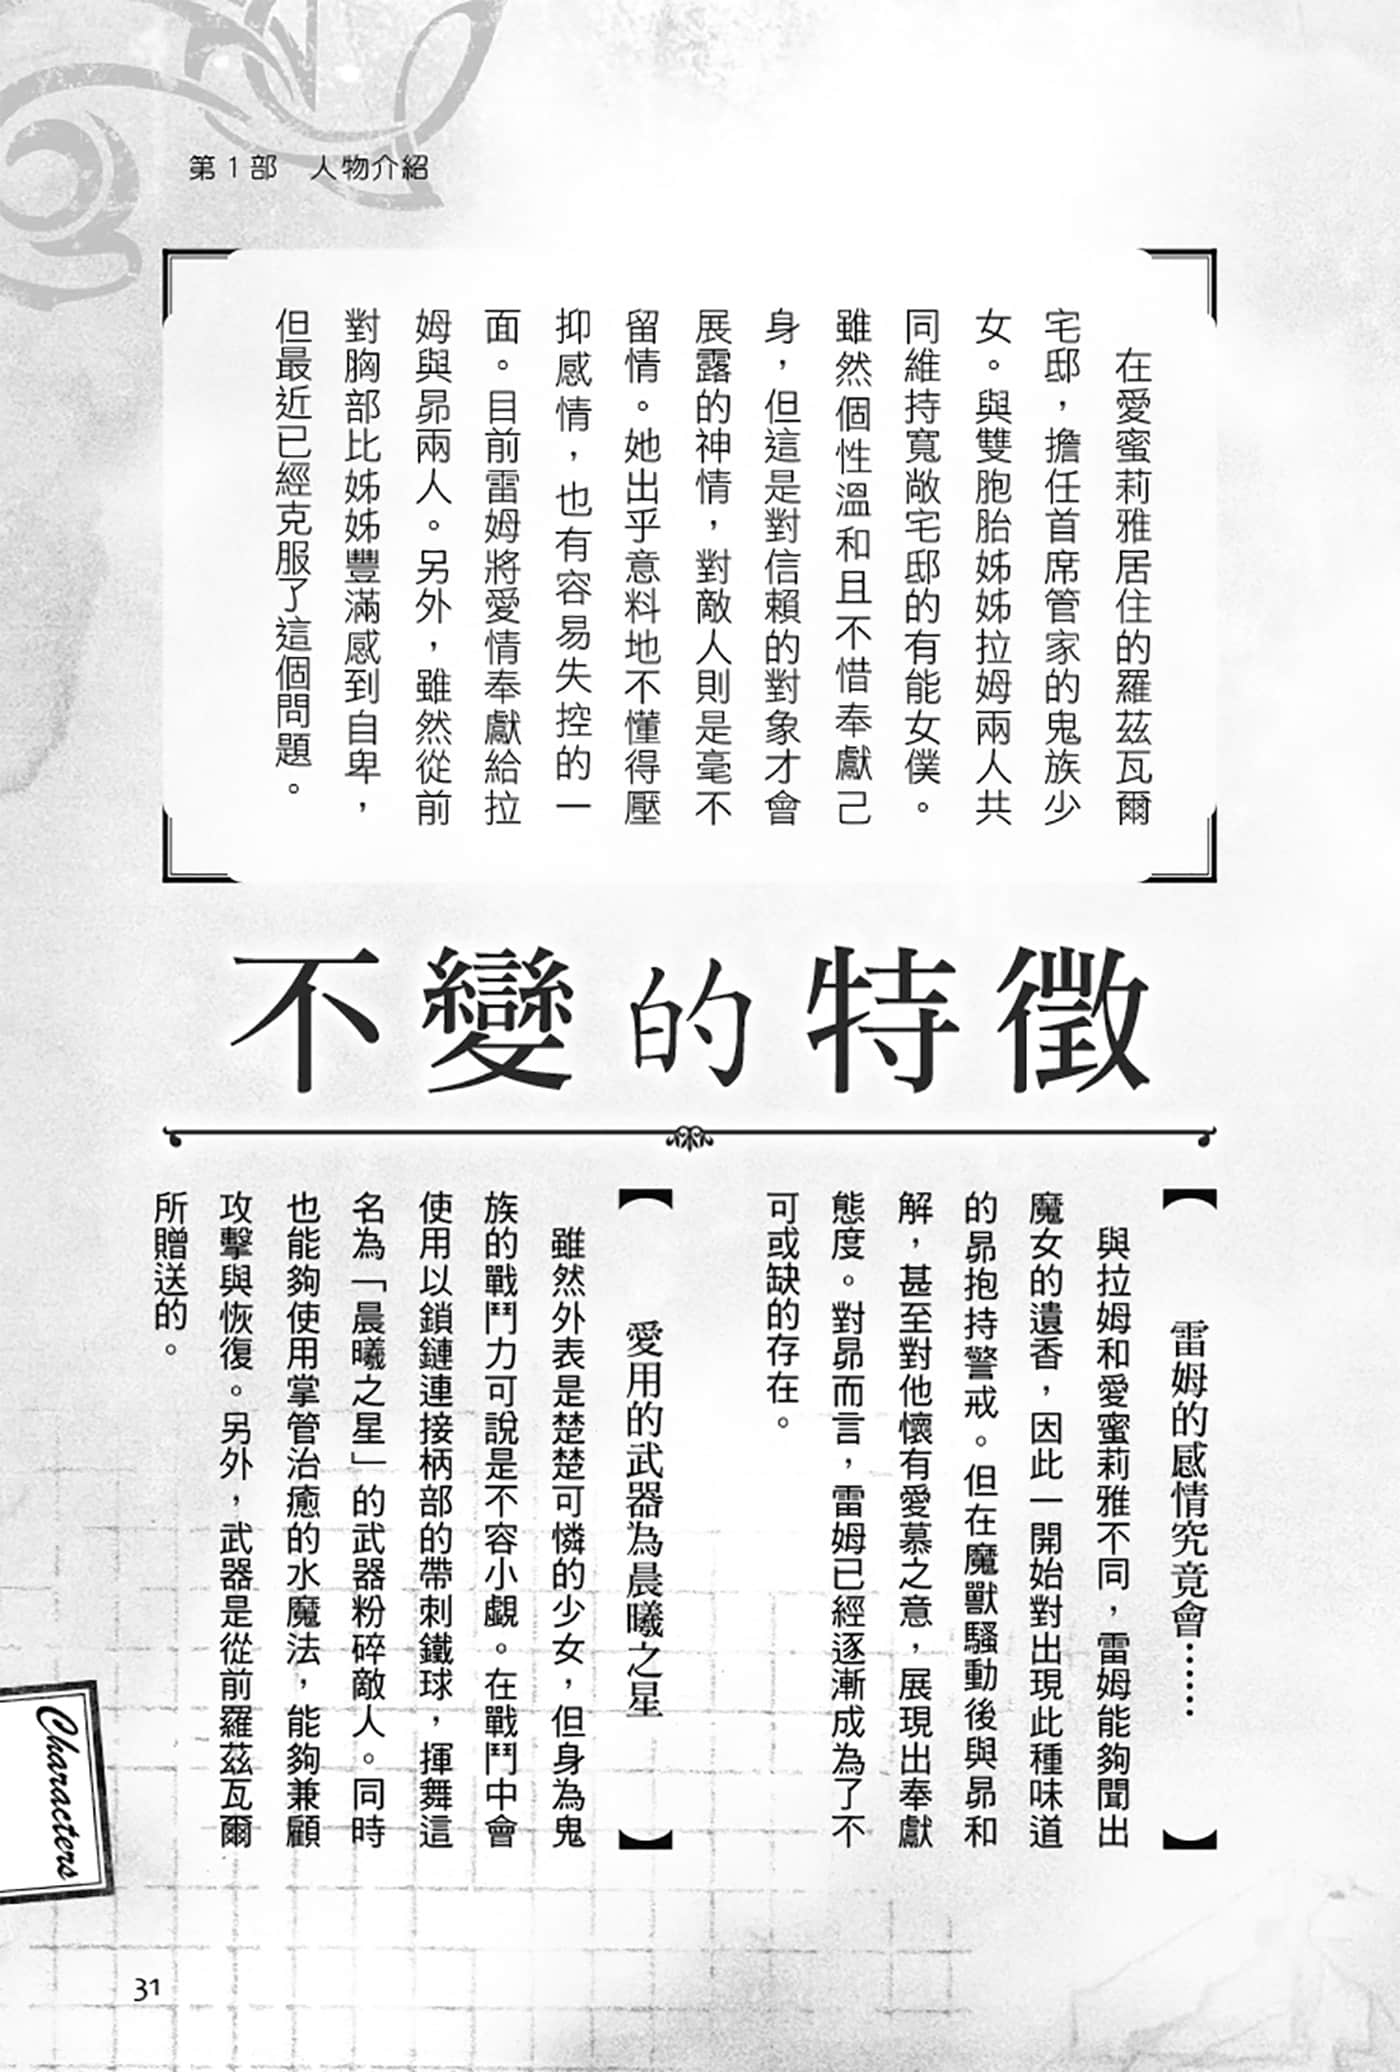 第1部　人物介紹
　在愛蜜莉雅居住的羅茲瓦爾
宅邸，擔任首席管家的鬼族少
女。與雙胞胎姊姊拉姆兩人共
同維持寬敞宅邸的有能女僕。
雖然個性溫和且不惜奉獻己
身，但這是對信賴的對象才會
展露的神情，對敵人則是毫不
留情。她出乎意料地不懂得壓
抑感情，也有容易失控的一
面。目前雷姆將愛情奉獻給拉
姆與昴兩人。另外，雖然從前
對胸部比姊姊豐滿感到自卑，
但最近已經克服了這個問題。
不變的特徵
【雷姆的感情究竟會……】
　與拉姆和愛蜜莉雅不同，雷姆能夠聞出
魔女的遺香，因此一開始對出現此種味道
的昴抱持警戒。但在魔獸騷動後與昴和
解，甚至對他懷有愛慕之意，展現出奉獻
態度。對昴而言，雷姆已經逐漸成為了不
可或缺的存在。
【愛用的武器為晨曦之星】
　雖然外表是楚楚可憐的少女，但身為鬼
族的戰鬥力可說是不容小覷。在戰鬥中會
使用以鎖鏈連接柄部的帶刺鐵球，揮舞這
名為「晨曦之星」的武器粉碎敵人。同時
也能夠使用掌管治癒的水魔法，能夠兼顧
攻擊與恢復。另外，武器是從前羅茲瓦爾
所贈送的。
Characters
31